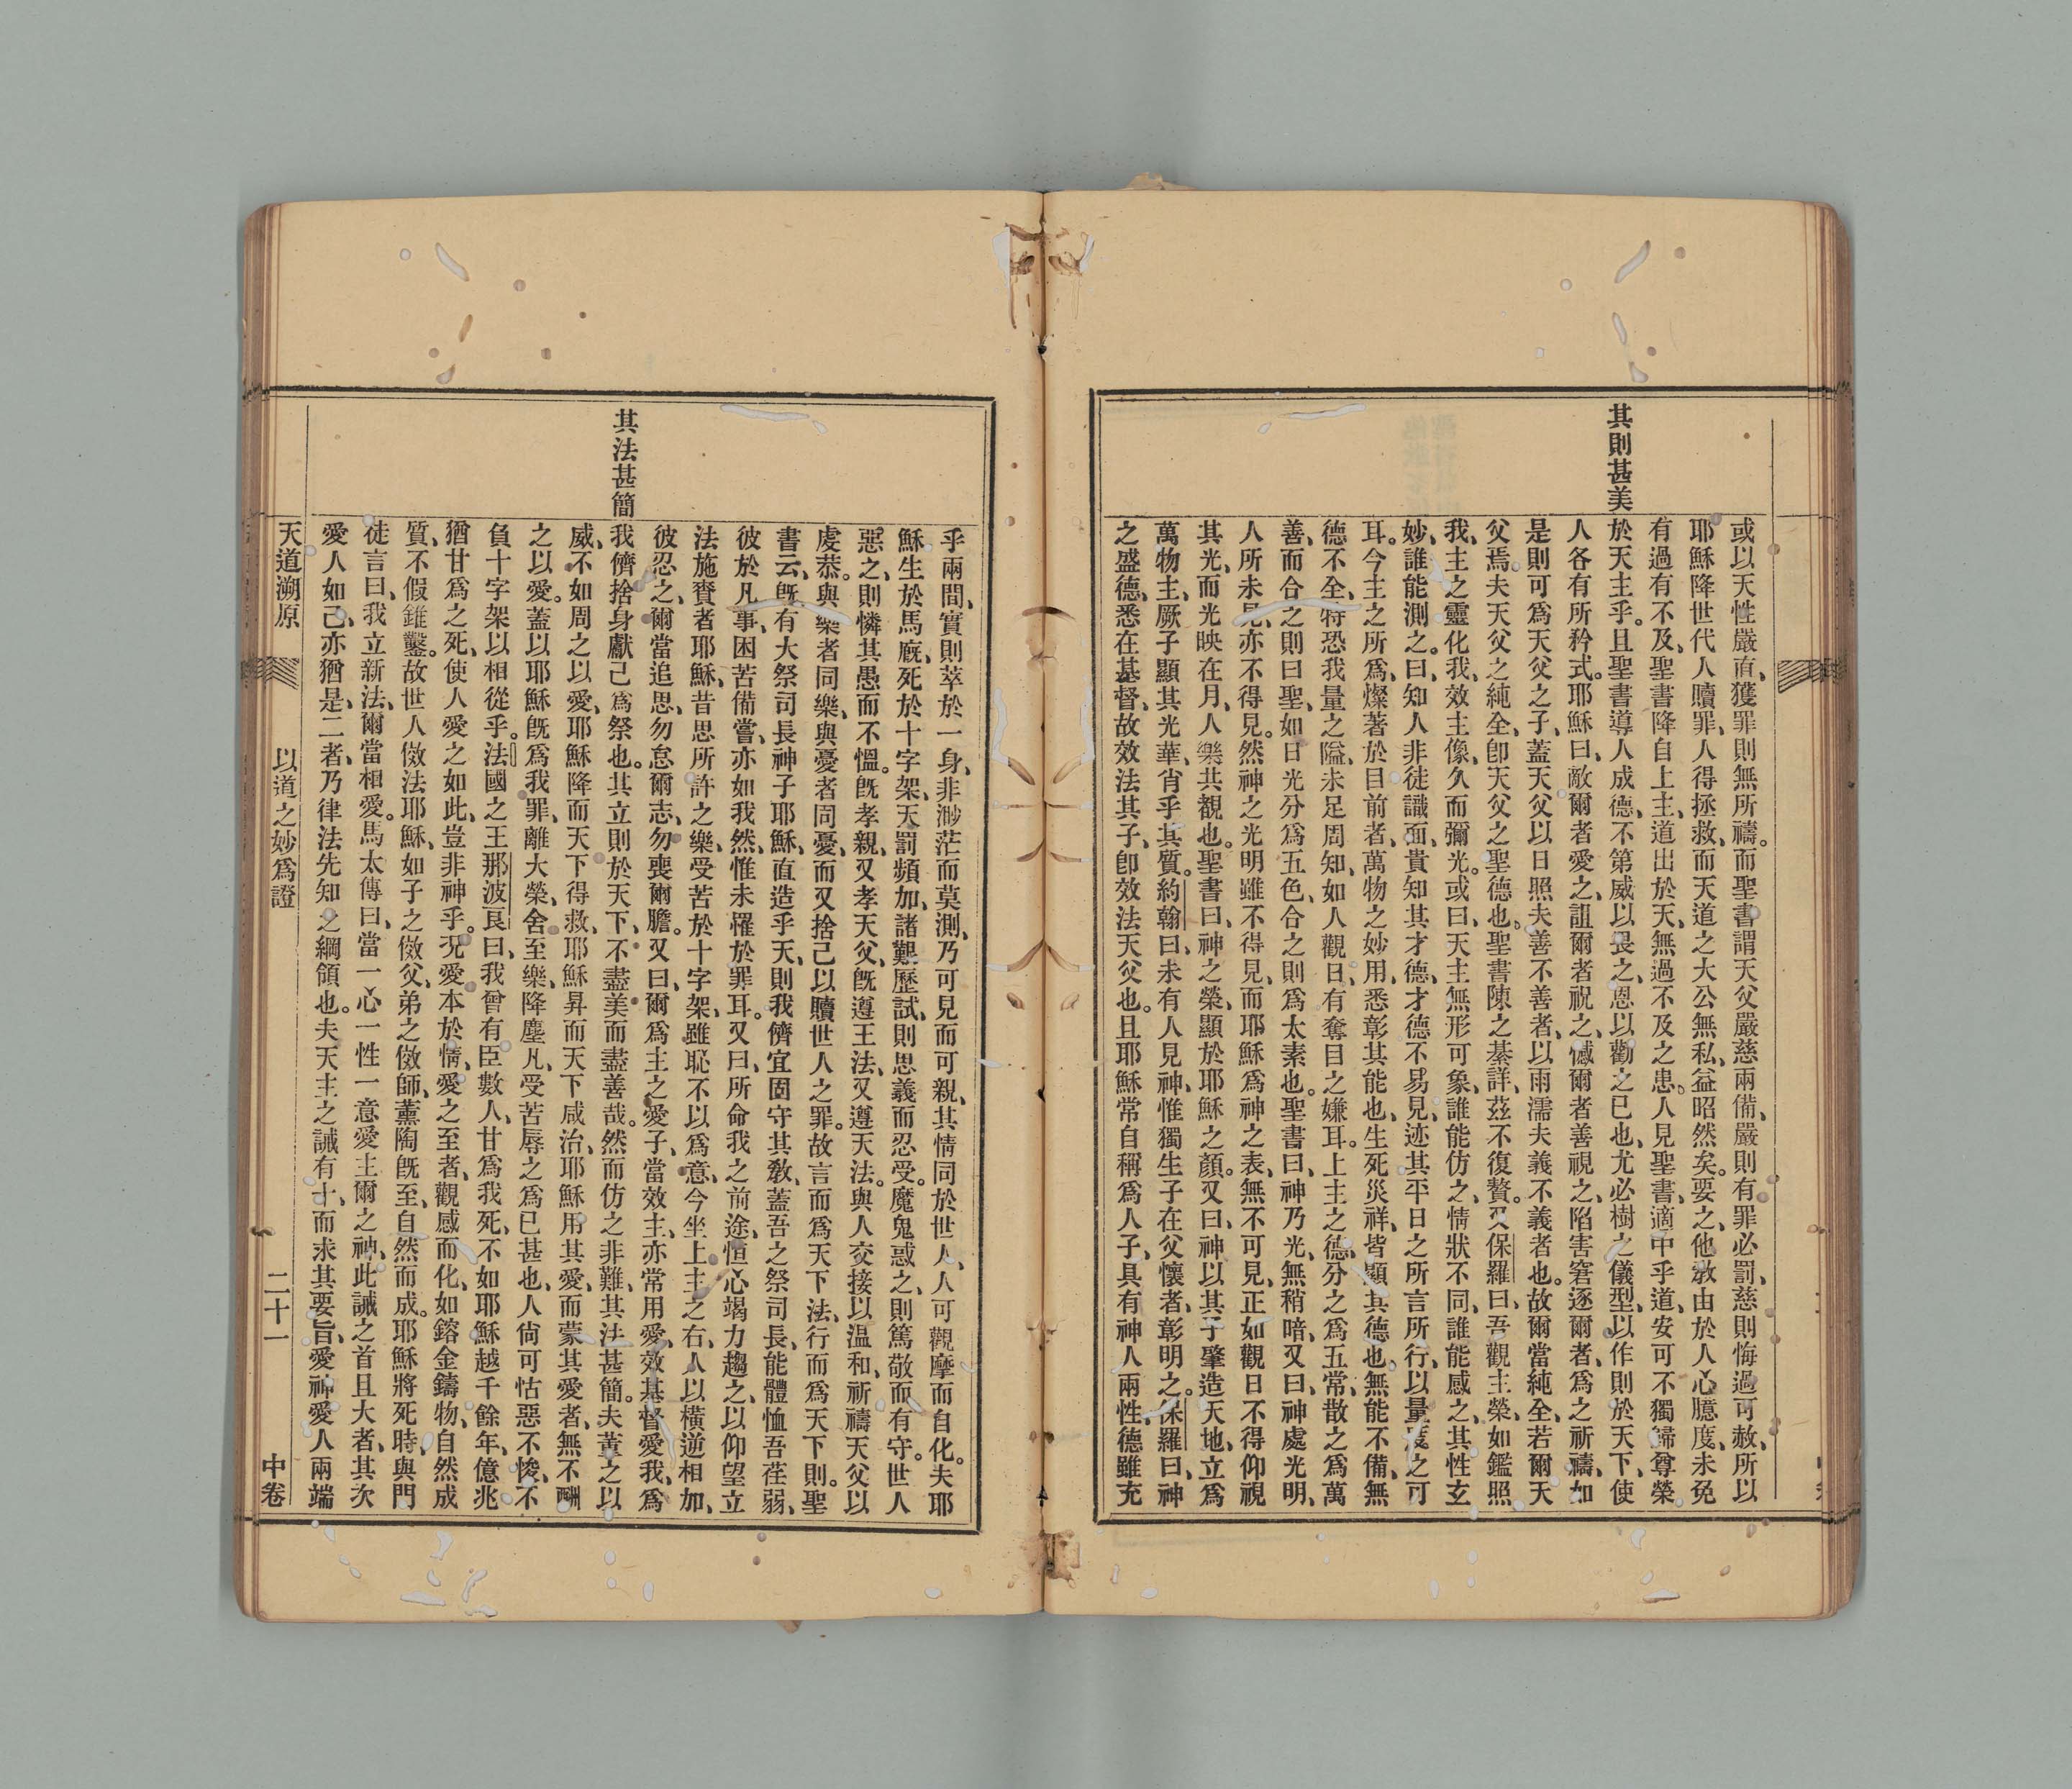 其則甚美
或以天性嚴直、獲罪則無所禱。而聖書謂天父嚴慈兩備、嚴則有罪必罰、慈則悔過可赦、所以
耶穌降世代人贖罪、人得拯救、而天道之大公無私、益昭然矣。要之、他教由於人心臆度、未免
有過有不及、聖書降自上主、道出於天、無過不及之患。人見聖書、適中乎道、安可不獨歸尊榮
於天主乎。且聖書導人成德、不第威以畏之、恩以勸之已也、尤必樹之儀型、以作則於天下、使
人各有所矜式。耶穌曰、敵爾者愛之、詛爾者祝之、憾爾者善視之、陷害窘逐爾者、爲之祈禱、如
是則可爲天父之子、蓋天父以日照夫善不善者、以雨濡夫義不義者也。故爾當純全、若爾天
父焉。夫天父之純全、卽天父之聖德也。聖書陳之綦詳、茲不復贅。又保羅曰、吾觀主榮、如鑑照
我、主之靈化我、效主像、久而彌光。或曰、天主無形可象、誰能仿之、情狀不同、誰能感之、其性玄
妙、誰能測之。曰、知人非徒識面、貴知其才德、才德不易見、迹其平日之所言所行、以量度之可
耳。今主之所爲、燦著於目前者、萬物之妙用、悉彰其能也、生死災祥、皆顯其德也。無能不備、無
德不全、特恐我量之隘、未足周知、如人觀日、有奪目之嫌耳。上主之德、分之爲五常、散之爲萬
善、而合之則曰聖、如日光分爲五色、合之則爲太素也。聖書曰、神乃光、無稍暗、又曰、神處光明、
人所未見、亦不得見。然神之光明雖不得見、而耶穌爲神之表、無不可見、正如觀日不得仰視
其光、而光映在月、人樂共觀也。聖書曰、神之榮、顯於耶穌之顏。又曰、神以其子肇造天地、立爲
萬物主、厥子顯其光華、肖乎其質。約翰曰、未有人見神、惟獨生子在父懷者、彰明之。保羅曰、神
之盛德、悉在基督、故效法其子、卽效法天父也。且耶穌常自稱爲人子、具有神人兩性、德雖充
其法甚簡
乎兩間、實則萃於一身、非渺茫而莫測、乃可見而可親、其情同於世人、人可觀摩而自化。夫耶
穌生於馬廐、死於十字架、天罰頻加、諸艱歷試、則思義而忍受。魔鬼惑之、則篤敬而有守。世人
惡之、則憐其愚而不慍。旣孝親、又孝天父、旣遵王法、又遵天法。與人交接以温和、祈禱天父以
虔恭。與樂者同樂、與憂者同憂、而又捨己以贖世人之罪。故言而爲天下法、行而爲天下則。聖
書云、旣有大祭司長神子耶穌、直造乎天、則我儕宜固守其敎、蓋吾之祭司長、能體恤吾荏弱、
彼於凡事、困苦備嘗、亦如我然、惟未罹於罪耳。又曰、所命我之前途、恒心竭力趨之、以仰望立
法施賚者耶穌、昔思所許之樂、受苦於十字架、雖恥不以爲意、今坐上主之右、人以橫逆相加、
彼忍之、爾當追思、勿怠爾志、勿喪爾膽。又曰、爾爲主之愛子、當效主、亦常用愛、效基督愛我、爲
我儕捨身獻己爲祭也。其立則於天下、不盡美而盡善哉。然而仿之非難、其法甚簡。夫董之以
威、不如周之以愛、耶穌降而天下得救、耶穌昇而天下咸治、耶穌用其愛、而蒙其愛者、無不酬
之以愛。蓋以耶穌旣爲我罪、離大榮、舍至樂、降塵凡、受苦辱之爲已甚也、人尙可怙惡不悛、不
負十字架以相從乎。法國之王那波良曰、我曾有臣數人、甘爲我死、不如耶穌越千餘年、億兆
猶甘爲之死、使人愛之如此、豈非神乎。况愛本於情、愛之至者、觀感而化、如鎔金鑄物、自然成
質、不假錐鑿。故世人傚法耶穌、如子之傚父、弟之傚師、薰陶旣至、自然而成。耶穌將死時、與門
徒言曰、我立新法、爾當相愛。馬太傳曰、當一心一性一意愛主爾之神、此誡之首且大者、其次
愛人如己、亦猶是、二者、乃律法先知之綱領也。夫天主之誡有十、而求其要旨、愛神愛人兩端
天道溯原 以道之妙爲證 二十一 中卷